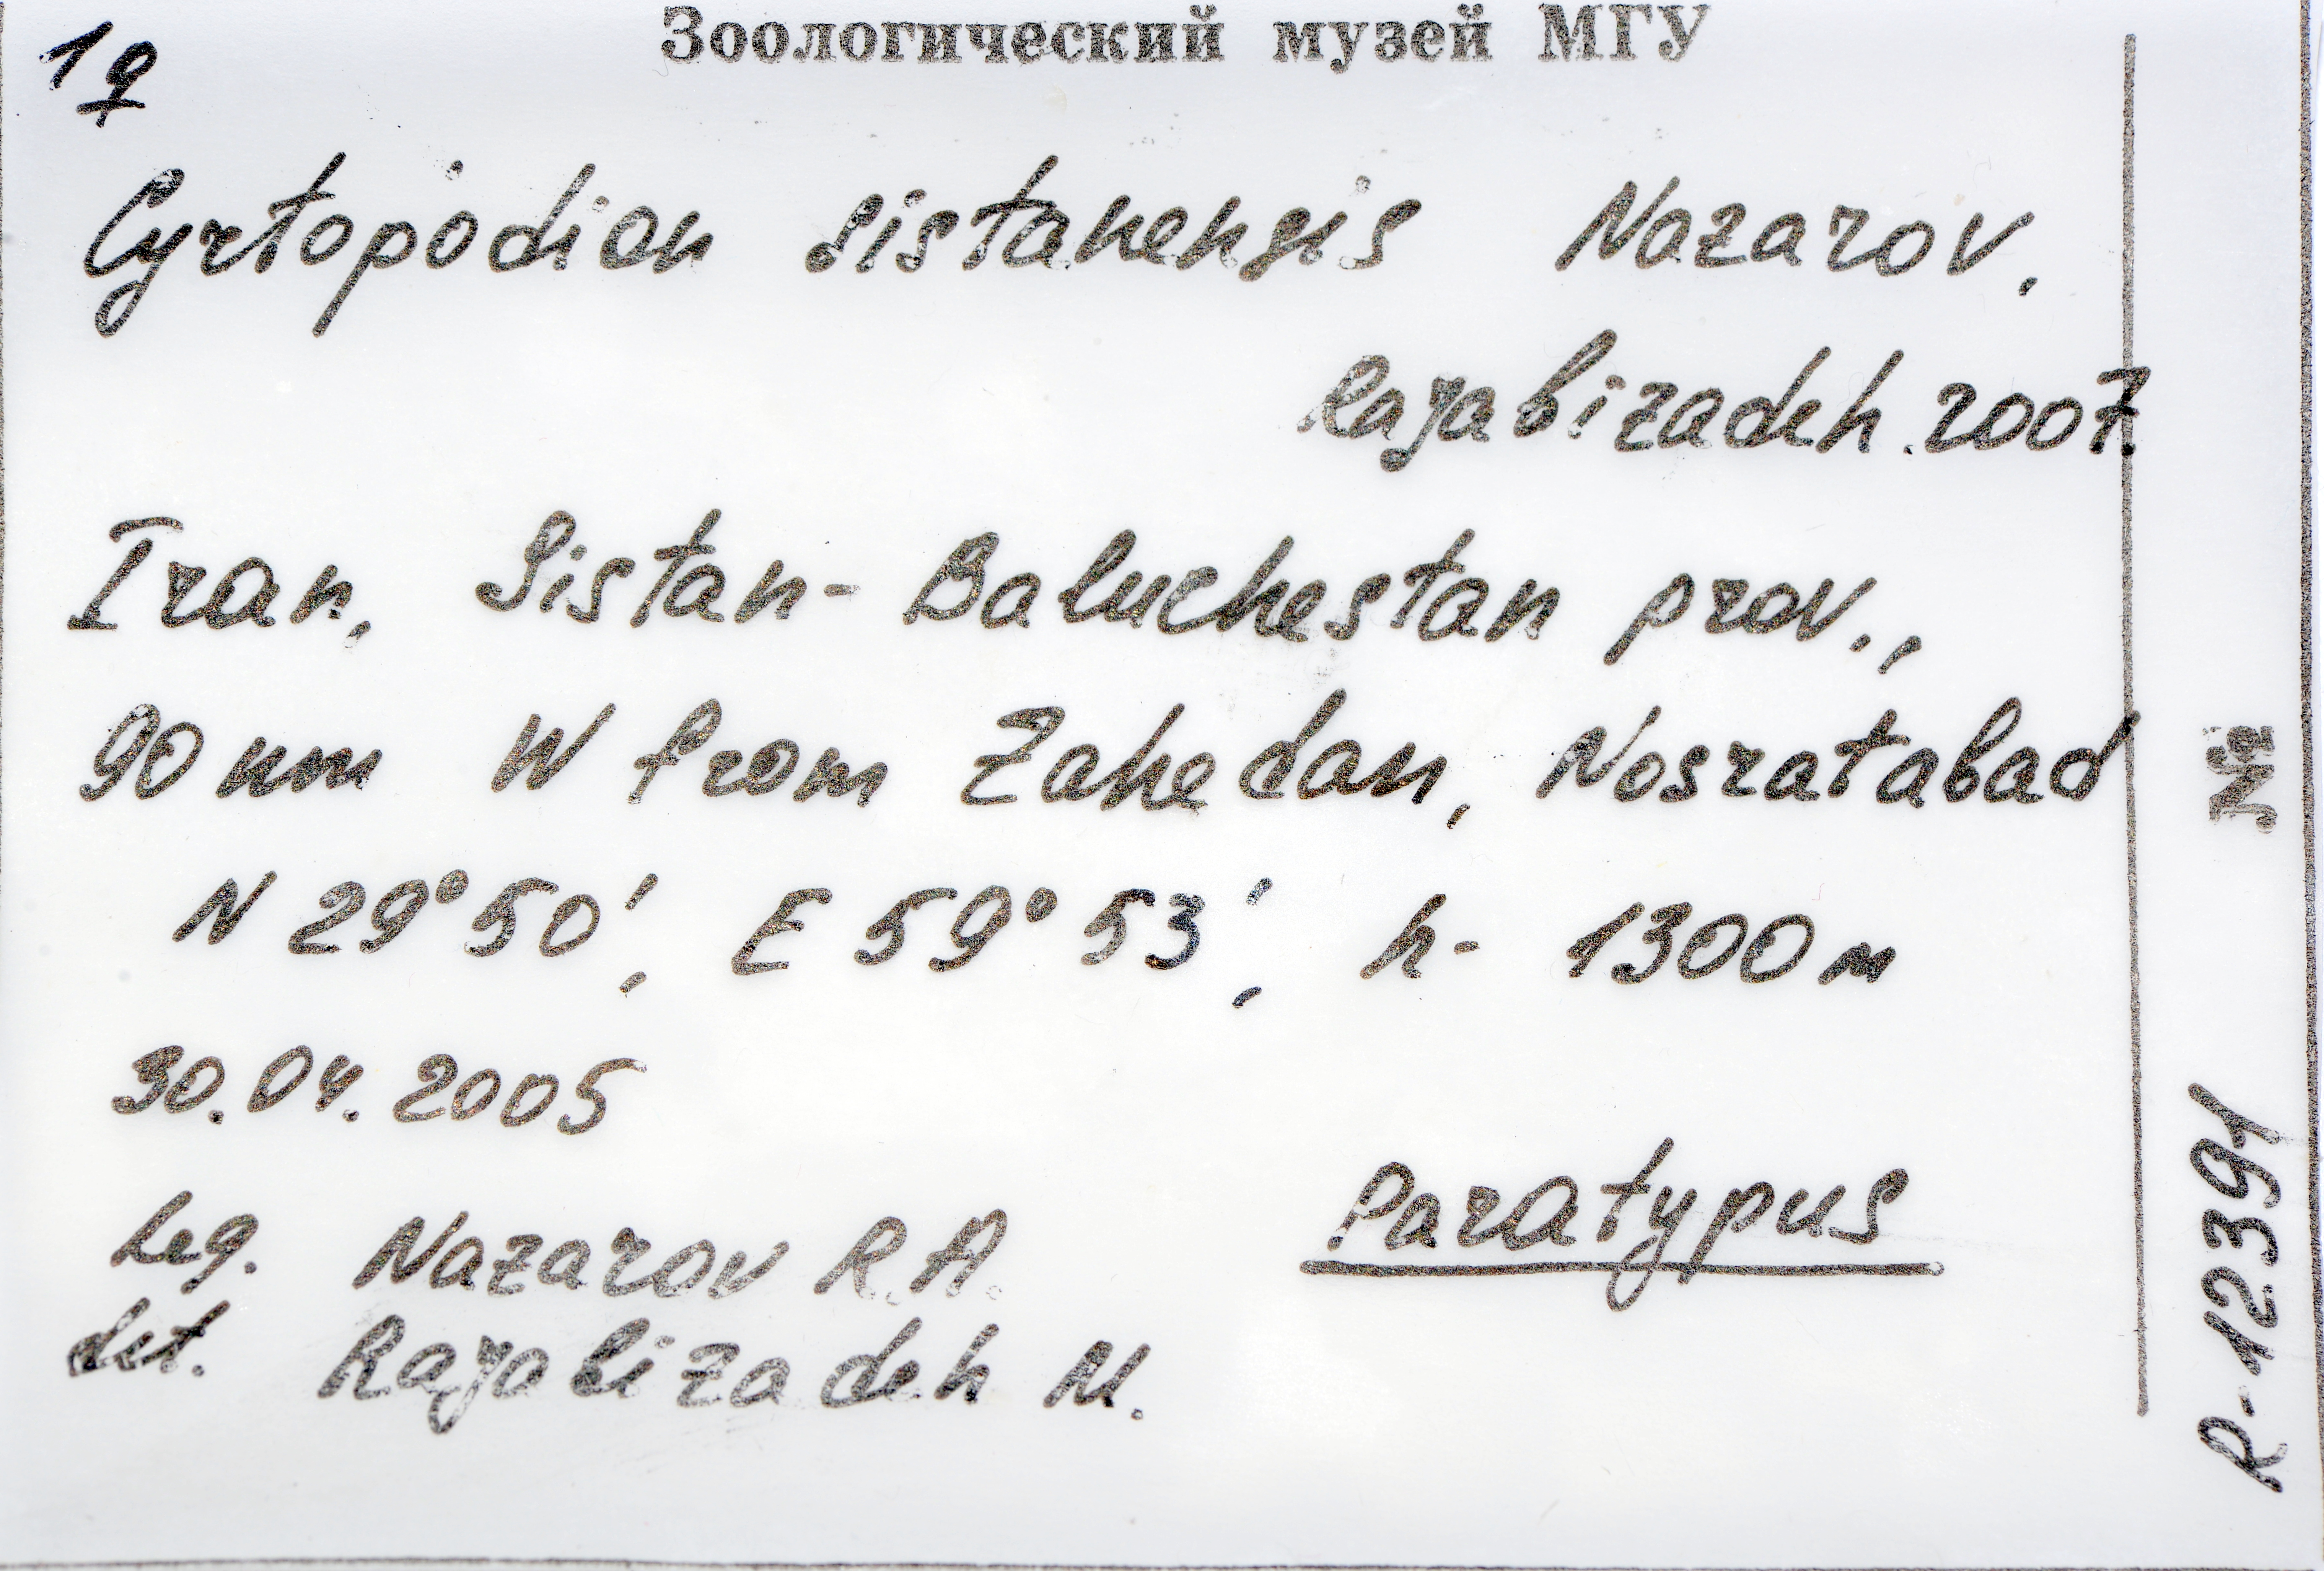 Зоологический музей МГУ
1♀
Cyrtopodion sistanensis Nazarov,
Rajabizadeh. 2007.
Iran, Sistan-Baluchestan prov.,
90 km W from Zahedan, Nosratabad
N 29°50', E 59°53', h- 1300 м
30.04.2005
Leg. Nazarov R.A.
Paratypus
det. Rajabizadeh M.
№ R-12391